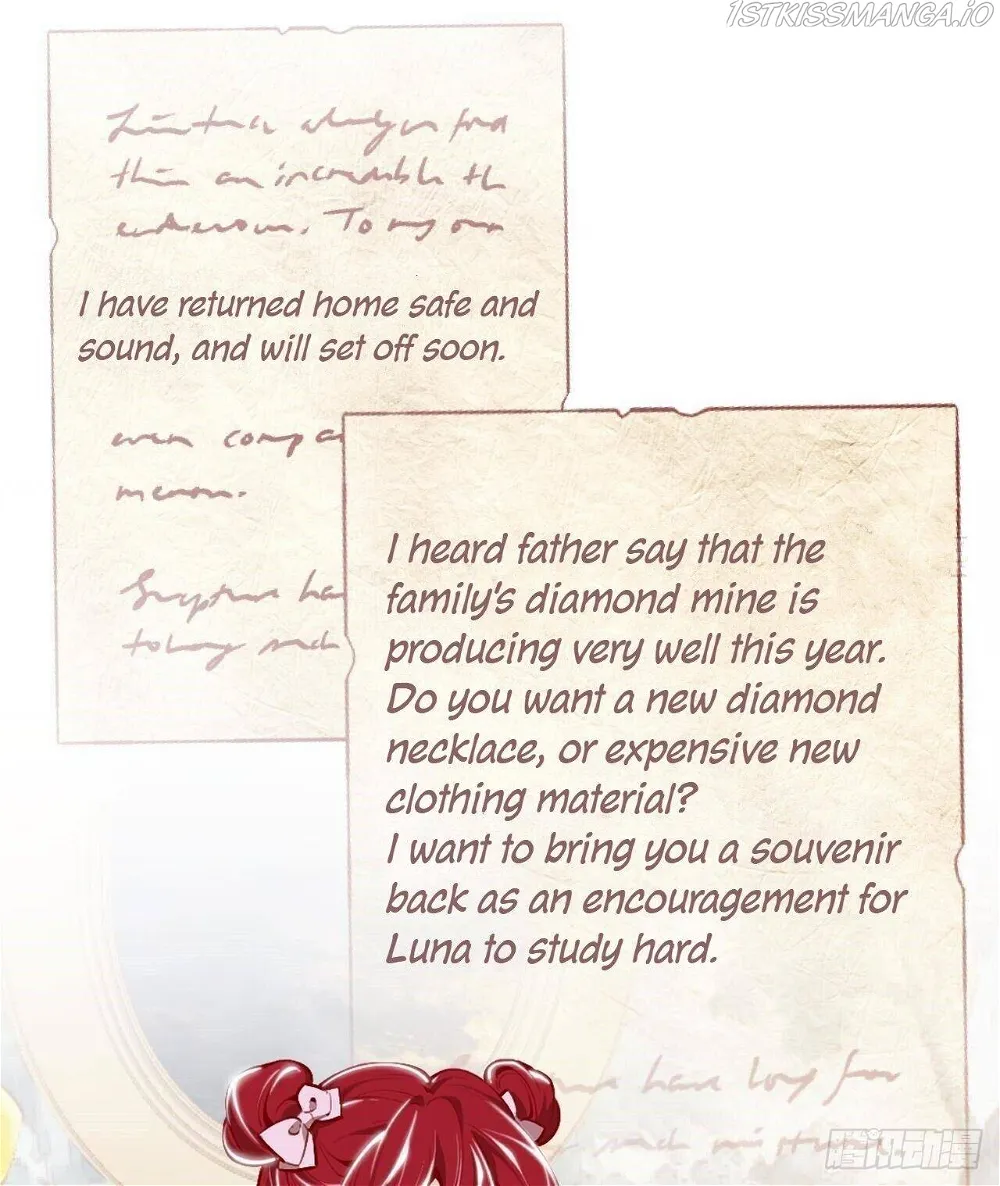 1STKISSMANGA.IO
an incredible th
To my own
I have returned home safe and
sound, and will set off soon.
even
I heard father say that the
family's diamond mine is
producing very well this year.
Do you want a new diamond
necklace, or expensive new
clothing material?
I want to bring you a souvenir
back as an encouragement for
Luna to study hard.
have long for
腾讯动漫